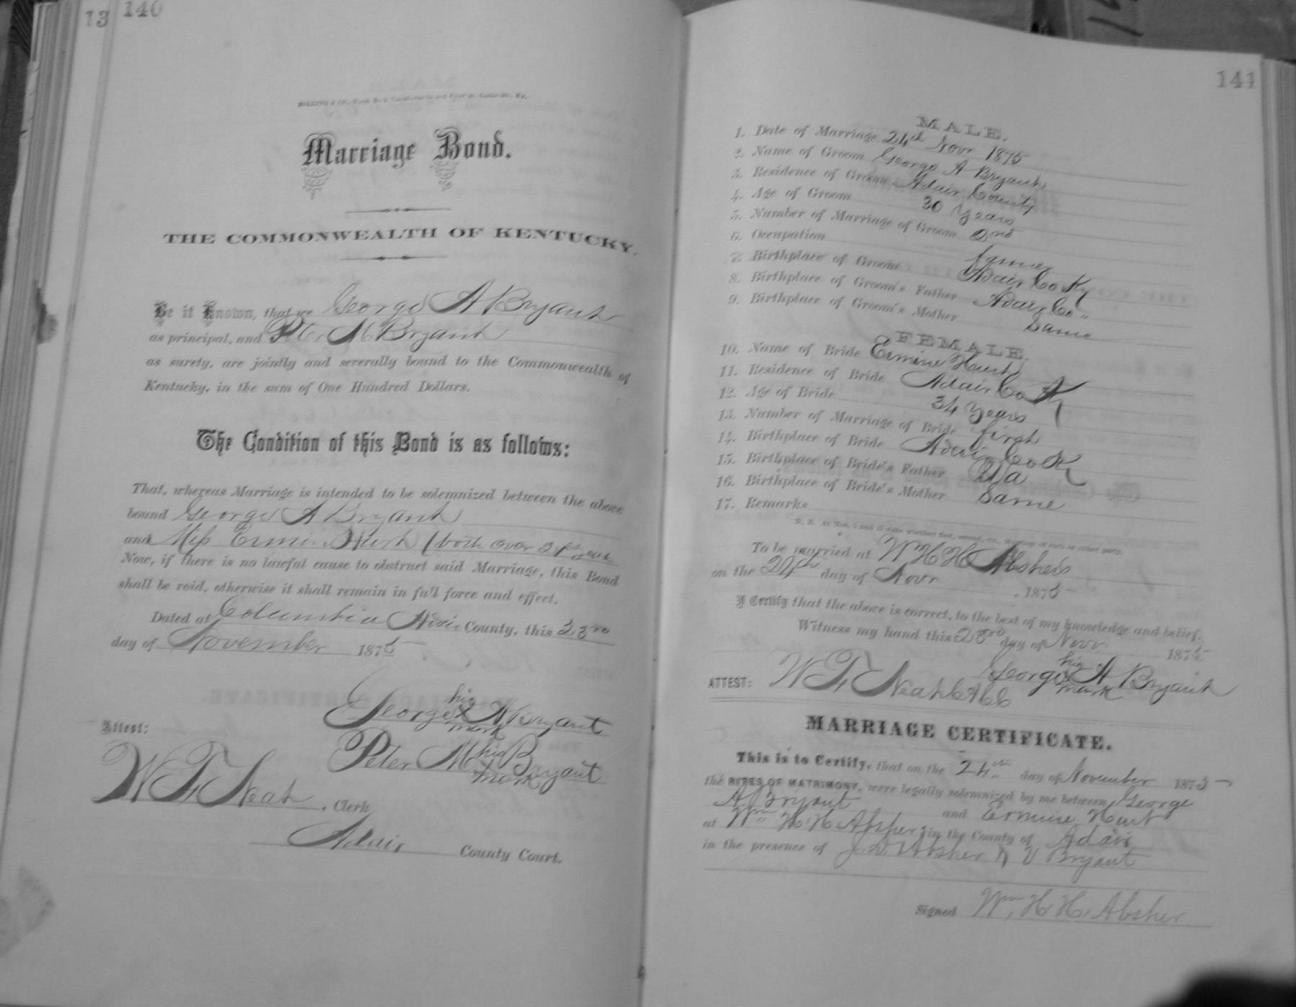 13 140
Marriage Bond.
THE COMMONWEALTH OF KENTUCKY.
Be it Known, that we George A Bryant
as principal, and Peter M Bryant
as surety, are jointly and severally bound to the Commonwealth of
Kentucky, in the sum of One Hundred Dollars.
The Condition of this Bond is as follows:
That, whereas Marriage is intended to be solemnized between the above
bound George A Bryant
and Miss (both over 21 years
Now, if there is no lawful cause to obstruct said Marriage, this Bond
shall be void, otherwise it shall remain in full force and effect.
Dated at Columbia Adair County, this 23rd
day of November 1875
George his x mark A Bryant
Attest: Peter M his mark Bryant
W T Neat, Clerk
Adair County Court.
141
MALE.
1. Date of Marriage 24th Novr 1875
2. Name of Groom George A Bryant
3. Residence of Groom Adair County
4. Age of Groom 30 years
5. Number of Marriage of Groom 2nd
6. Occupation farmer
7. Birthplace of Groom Adair Co Ky
8. Birthplace of Groom's Father Adair Co "
9. Birthplace of Groom's Mother Same
FEMALE.
10. Name of Bride Ermine Hurt
11. Residence of Bride Adair Co Ky
12. Age of Bride 34 years
13. Number of Marriage of Bride first
14. Birthplace of Bride Adair Co Ky
15. Birthplace of Bride's Father Va
16. Birthplace of Bride's Mother Same
17. Remarks
To be married at W H H Absher's
on the 24th day of Novr , 1875
I Certify that the above is correct, to the best of my knowledge and belief.
Witness my hand this 23rd day of Novr 1875
George his x mark A Bryant
ATTEST: W T Neat
MARRIAGE CERTIFICATE.
This is to Certify, that on the 24th day of November 1875
the RITES OF MATRIMONY, were legally solemnized by me between George
A Bryant and Ermine Hurt
at Wm H H Absher, in the County of Adair
in the presence of J D Absher & V Bryant
Signed Wm, H H, Absher